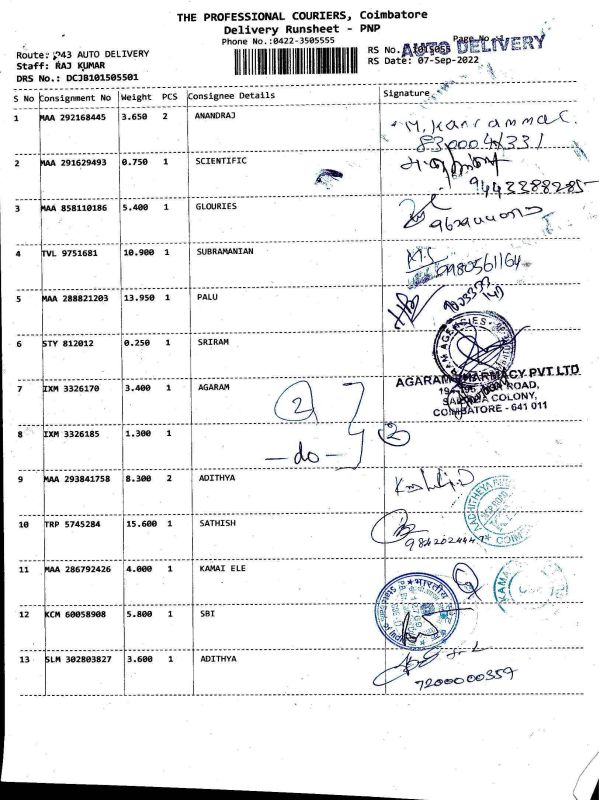 THE PROFESSIONAL COURIERS, Coimbatore
Delivery Runsheet - PNP
Phone No.:0422-3505555
Page No
AUTO DELIVERY
Route: P43 AUTO DELIVERY
RS No.
Staff: RAJ KUMAR
RS Date: 07-Sep-2022
DRS No.: DCJB101505501
S No Consignment No Weight PCS Consignee Details Signature
1 MAA 292168445 3.650 2 ANANDRAJ
2 MAA 291629493 0.750 1 SCIENTIFIC
9443288285
3 MAA 858110186 5.400 1 GLOURIES
4 TVL 9751681 10.900 1 SUBRAMANIAN
9980561164
5 MAA 288821203 13.950 1 PALU
6 STY 812012 0.250 1 SRIRAM
AGARAM PHARMACY PVT LTD
ROAD,
COLONY,
COIMBATORE - 641 011
7 IXM 3326170 3.400 1 AGARAM
2
8 IXM 3326185 1.300 1
- do -
2
9 MAA 293841758 8.300 2 ADITHYA
10 TRP 5745284 15.600 1 SATHISH
11 MAA 286792426 4.000 1 KAMAI ELE
12 KCM 60058908 5.800 1 SBI
भारतीय
13 SLM 302803827 3.600 1 ADITHYA
7200000359